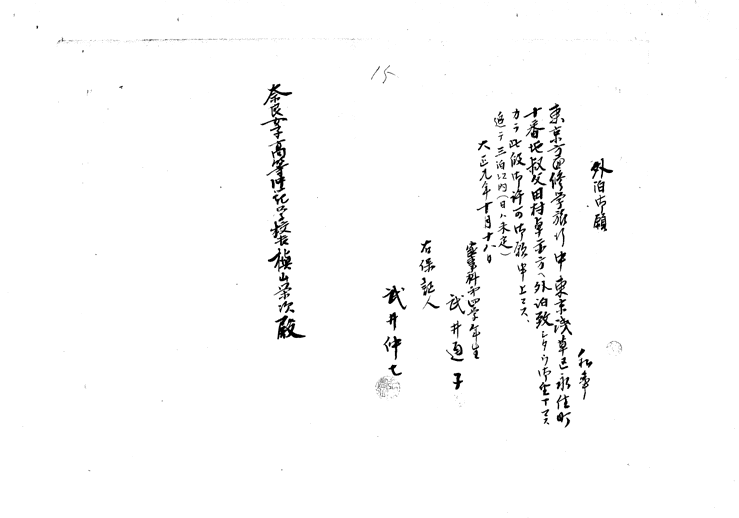 15
外泊御願
私事
東京方面修学旅行中東京浅草区永住町
十番地叔父田村卓 方ヘ外泊致シタク御座イマス
カラ此段御許可御願申上マス、
追テ三泊以内(日ハ未定)
大正元年十月十八日
家事科第四学年生
武井通子
右保証人
武井仲七
奈良女子高等師範学校長槇山栄次殿